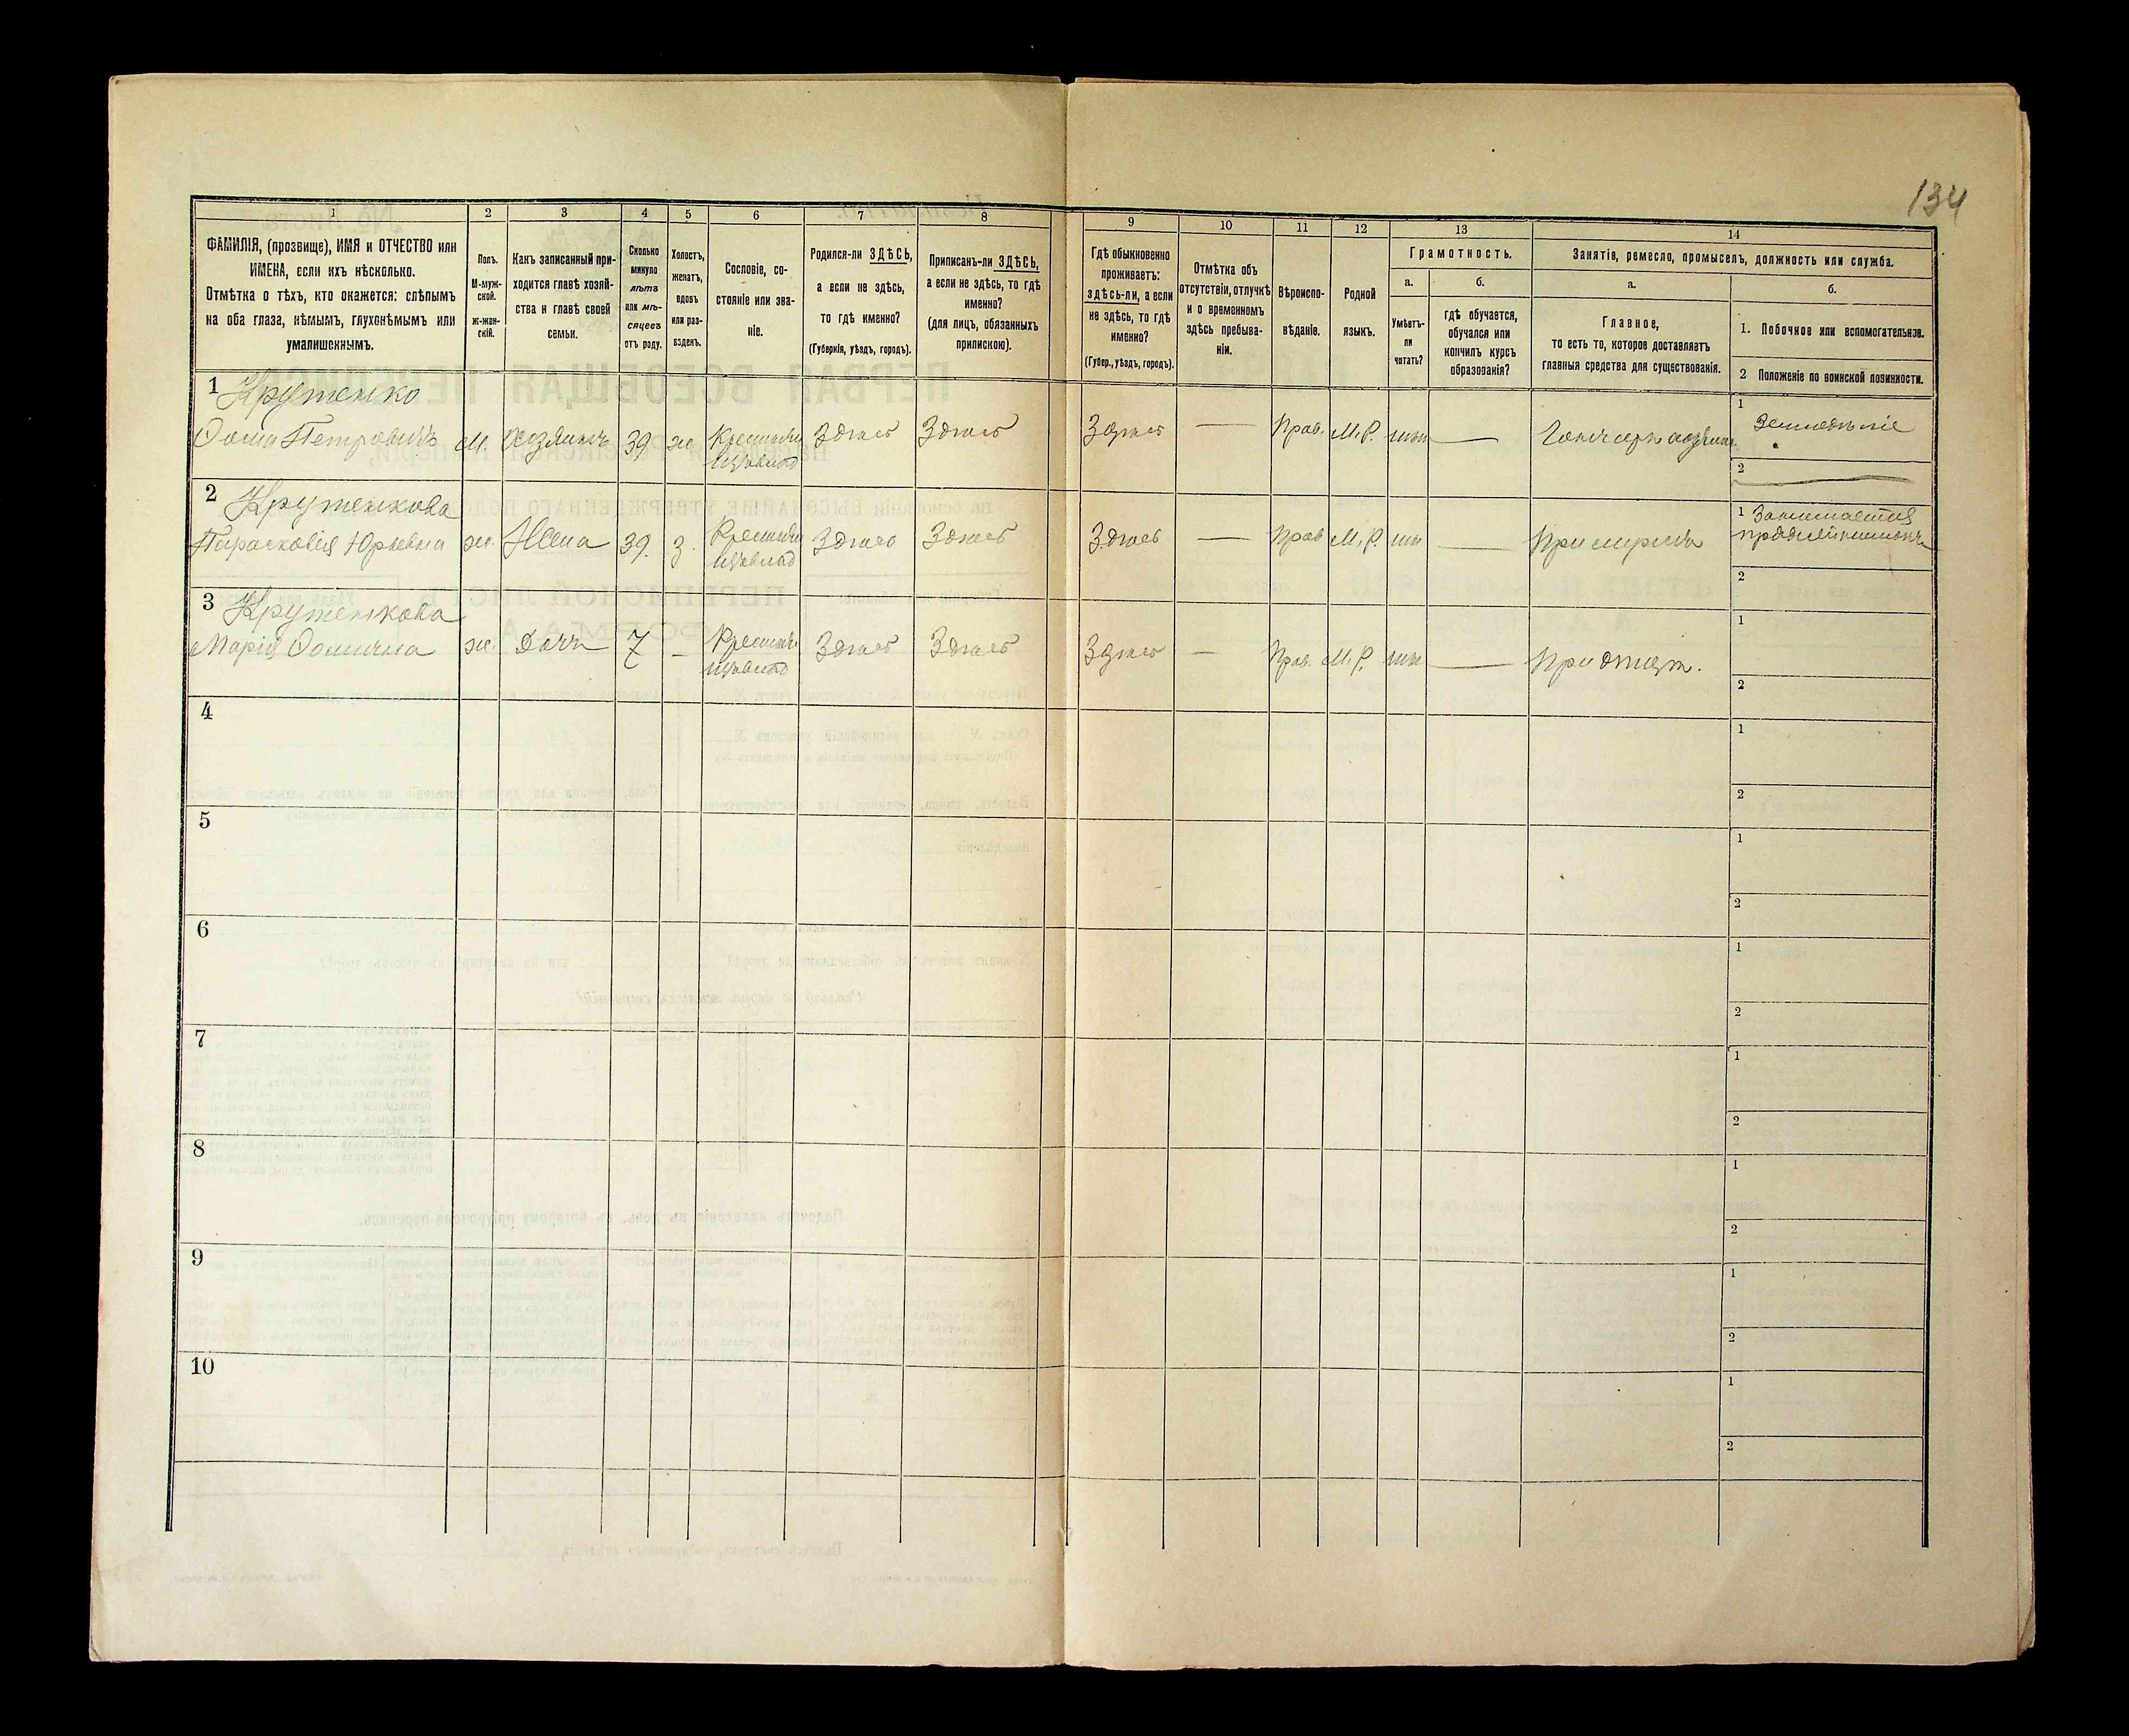 134
1 2 3 4 5 6 7 8 9 10 11 12 13 14
ФАМИЛІЯ, (прозвище), ИМЯ и ОТЧЕСТВО или
ИМЕНА, если ихъ нѣсколько.
Отмѣтка о тѣхъ, кто окажется: слѣпымъ
на оба глаза, нѣмымъ, глухонѣмымъ или
умалишеннымъ.
Полъ.
М-муж-
ской.
ж-жен-
скій.
Какъ записанный при-
ходится главѣ хозяй-
ства и главѣ своей
семьи.
Сколько
минуло
лѣтъ
или мѣ-
сяцевъ
отъ роду.
Холостъ,
женатъ,
вдовъ
или раз-
веденъ.
Сословіе, со-
стояніе или зва-
ніе.
Родился-ли ЗДѢСЬ,
а если не здѣсь,
то гдѣ именно?
(Губернія, уѣздъ, городъ).
Приписанъ-ли ЗДѢСЬ,
а если не здѣсь, то гдѣ
именно?
(для лицъ, обязанныхъ
припискою).
Гдѣ обыкновенно
проживаетъ:
здѣсь-ли, а если
не здѣсь, то гдѣ
именно?
(Губер., уѣздъ, городъ).
Отмѣтка объ
отсутствіи, отлучкѣ
и о временномъ
здѣсь пребыва-
ніи.
Вѣроиспо-
вѣданіе.
Родной
языкъ.
Грамотность.
а.
Умѣетъ-
ли
читать?
б.
гдѣ обучается,
обучался или
кончилъ курсъ
образованія?
Занятіе, ремесло, промыселъ, должность или служба.
а.
Главное,
то есть то, которое доставляетъ
главныя средства для существованія.
б.
1. Побочное или вспомогательное.
2 Положеніе по воинской повинности.
1 Крутенко
Ѳома Петровичъ м. Хозяинъ 39 ж Здѣсь Здѣсь Здѣсь — Прав. М.Р. — 1 Земледѣліе
2
2 Крутенкова
Парасковія Юрьевна ж. Жена 39. З. Здѣсь Здѣсь Здѣсь — Прав М.Р. — При мужѣ 1 Занимается
2
3 Крутенкова
Марія Ѳомична ж. Дочь 7 — Здѣсь Здѣсь Здѣсь — Прав. М.Р. — При отцѣ. 1
2
4 1
2
5 1
2
6 1
2
7 1
2
8 1
2
9 1
2
10 1
2